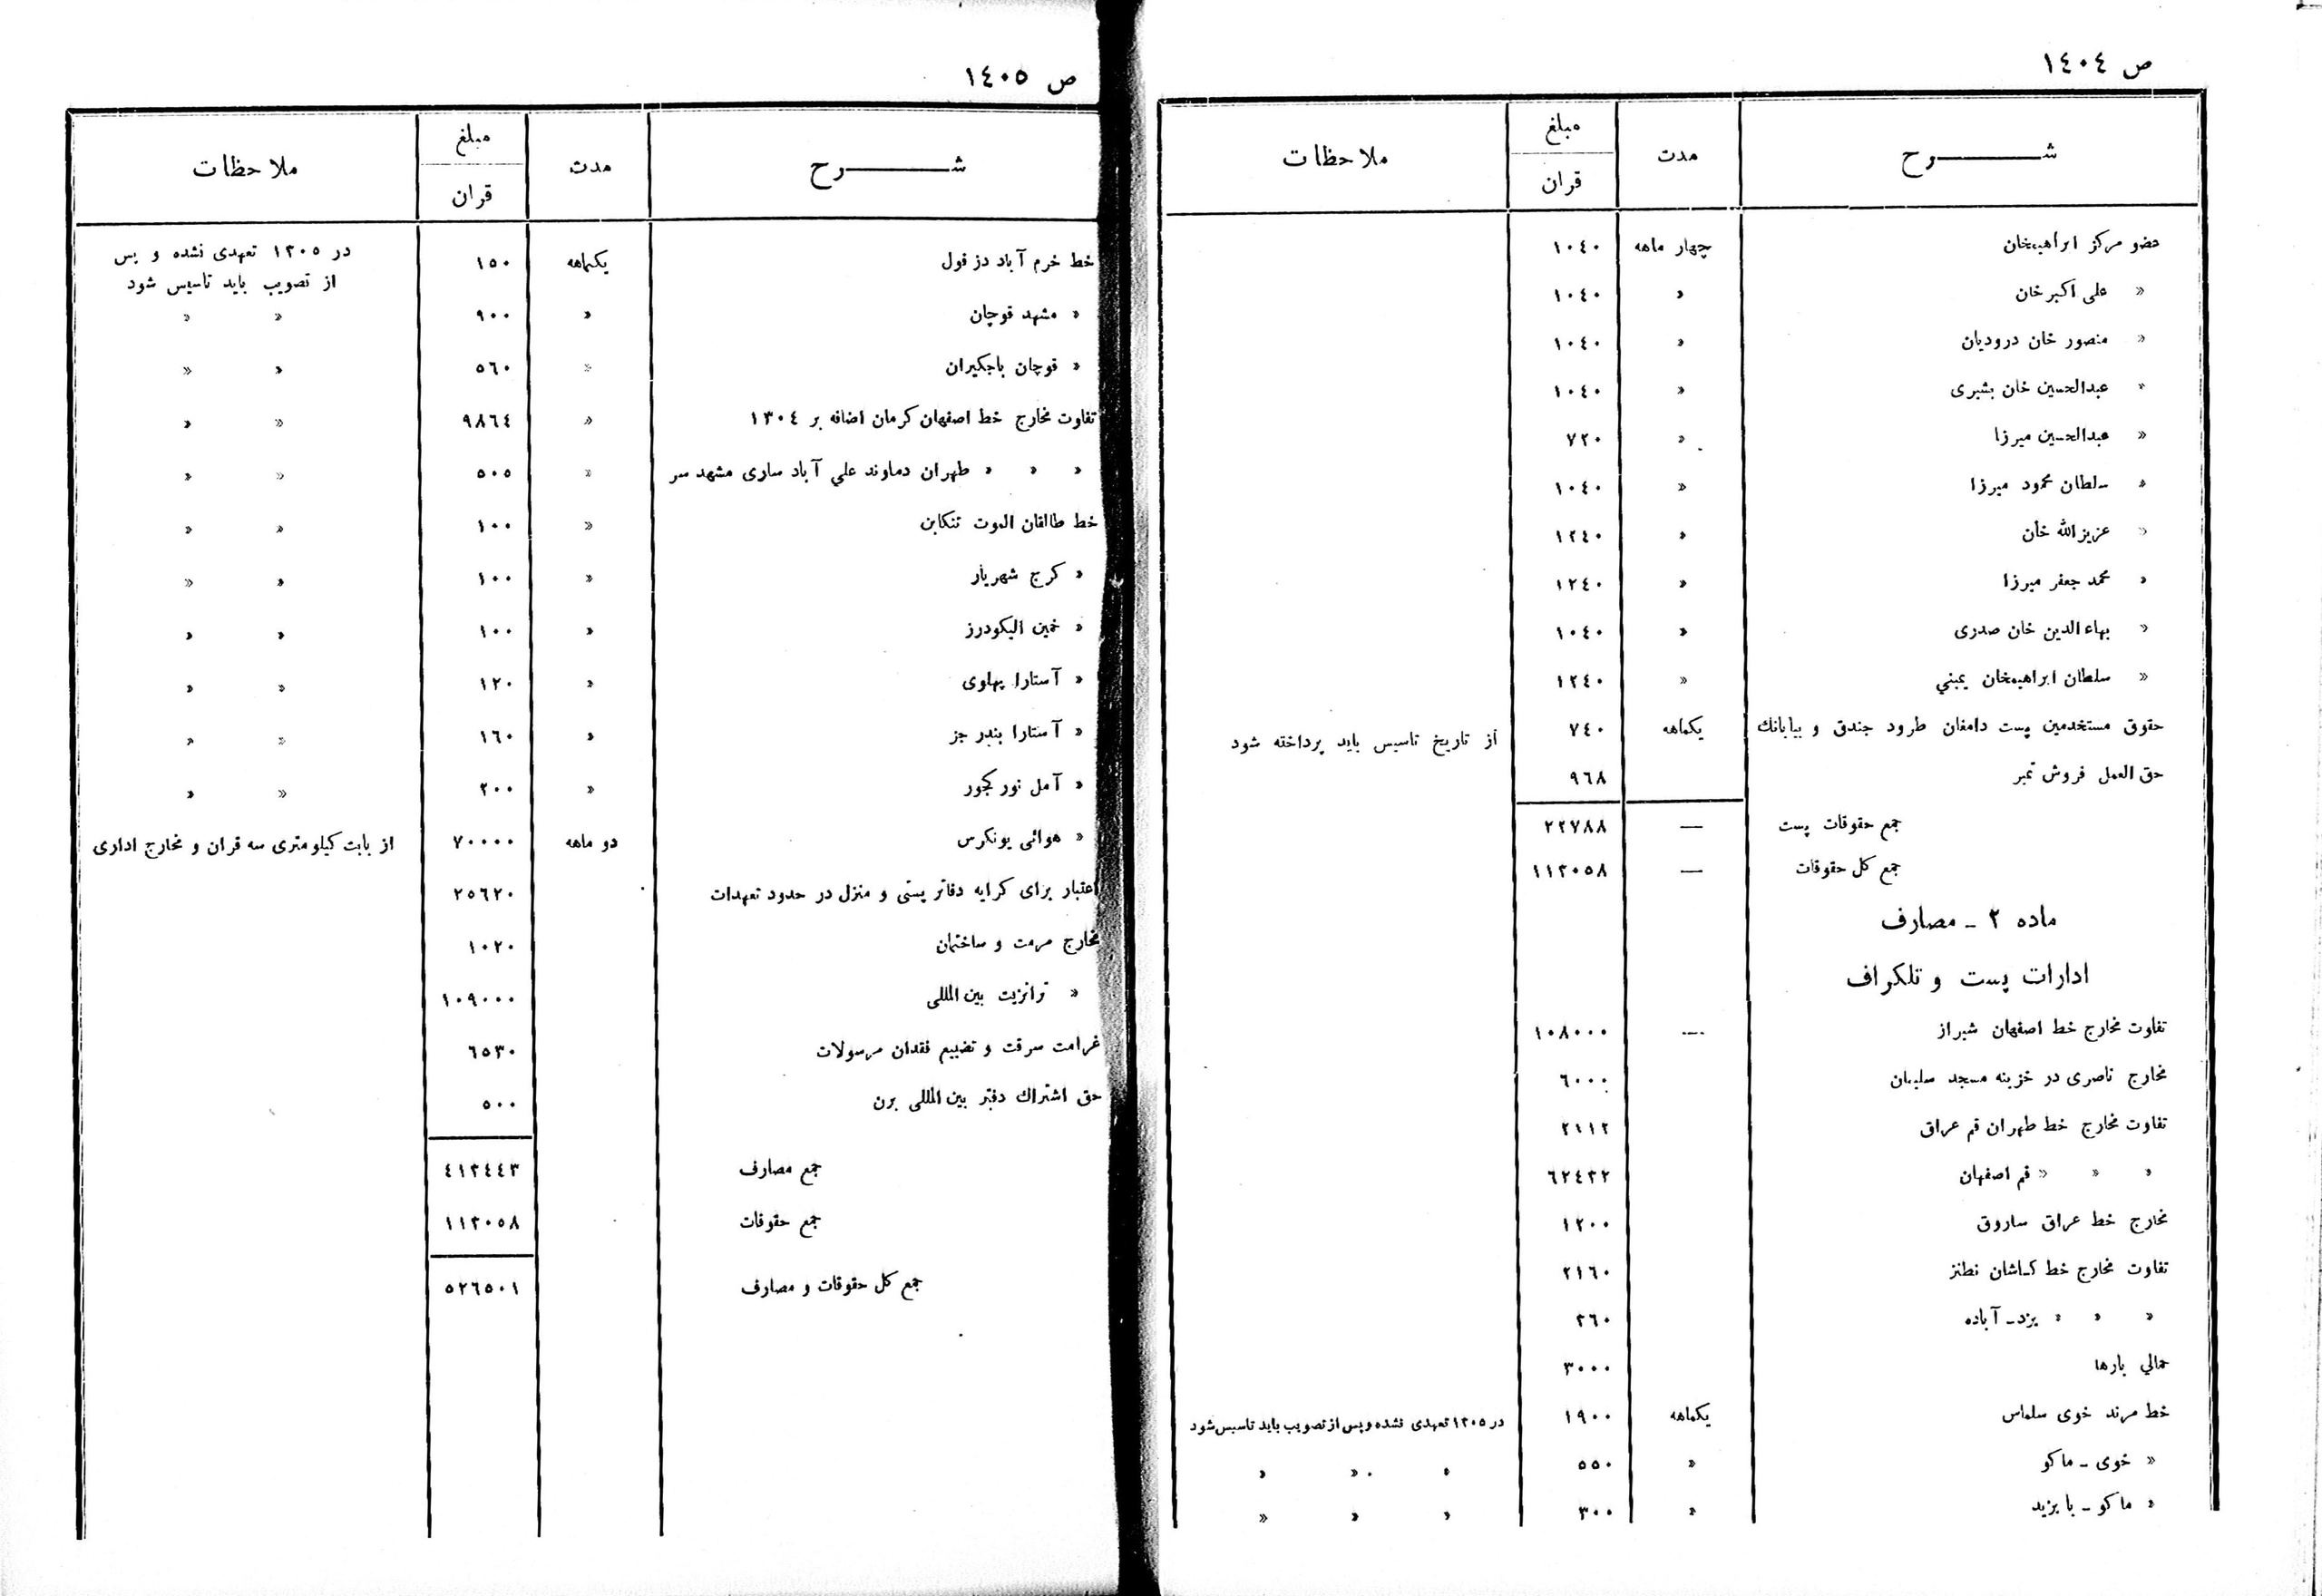 ص ١٤٠٤
شرح مدت مبلغ قران ملاحظات
عضو مرکز ابراهیمخان چهار ماهه ١٠٤٠
« علی اکبر خان « ١٠٤٠
« منصور خان درودیان « ١٠٤٠
« عبدالحسین خان بشیری « ١٠٤٠
« عبدالحسین میرزا « ٧٢٠
« سلطان محمود میرزا « ١٠٤٠
« عزیزالله خان « ١٢٤٠
« محمد جعفر میرزا « ١٢٤٠
« بهاءالدین خان صدری « ١٠٤٠
« سلطان ابراهیمخان یمینی « ١٢٤٠
حقوق مستخدمین پست دامغان طرود جندق و بیابانک یکماهه ٧٤٠ از تاریخ تاسیس باید پرداخته شود
حق العمل فروش تمبر ٩٦٨
جمع حقوقات پست — ٢٢٧٨٨
جمع کل حقوقات — ١١٣٠٥٨
ماده ٢ ـ مصارف
ادارات پست و تلگراف
تفاوت مخارج خط اصفهان شیراز — ١٠٨٠٠٠
مخارج ناصری در خزینه مسجد سلیمان ٦٠٠٠
تفاوت مخارج خط طهران قم عراق ٢١١٢
« « « قم اصفهان ٦٢٤٣٢
مخارج خط عراق ساروق ١٢٠٠
تفاوت مخارج خط کاشان نطنز ٢١٦٠
« « « یزد ـ آباده ٣٦٠
حمالی بارها ٣٠٠٠
خط مرند خوی سلماس یکماهه ١٩٠٠ در ١٣٠٥ تعهدی نشده و پس از تصویب باید تاسیس شود
« خوی ـ ماکو « ٥٥٠ « « «
« ماکو ـ بایزید « ٣٠٠ « « «
ص ١٤٠٥
شرح مدت مبلغ قران ملاحظات
خط خرم آباد دزفول یکماهه ١٥٠ در ١٣٠٥ تعهدی نشده و پس
از تصویب باید تاسیس شود
« مشهد قوچان « ٩٠٠ « «
« قوچان باجگیران « ٥٦٠ « «
تفاوت مخارج خط اصفهان کرمان اضافه بر ١٣٠٤ « ٩٨٦٤ « «
« « « طهران دماوند علی آباد ساری مشهد سر « ٥٠٥ « «
خط طالقان الموت تنکابن « ١٠٠ « «
« کرج شهریار « ١٠٠ « «
« خمین الیگودرز « ١٠٠ « «
« آستارا پهلوی « ١٢٠ « «
« آستارا بندر جز « ١٦٠ « «
« آمل نور کجور « ٢٠٠ « «
« هوائی یونکرس دو ماهه ٧٠٠٠٠ از بابت کیلومتری سه قران و مخارج اداری
اعتبار برای کرایه دفاتر پستی و منزل در حدود تعهدات ٢٥٦٢٠
مخارج مرمت و ساختمان ١٠٢٠
« ترانزیت بین المللی ١٠٩٠٠٠
غرامت سرقت و تضییع فقدان مرسولات ٦٥٣٠
حق اشتراک دفتر بین المللی برن ٥٠٠
جمع مصارف ٤١٣٤٤٣
جمع حقوقات ١١٣٠٥٨
جمع کل حقوقات و مصارف ٥٢٦٥٠١